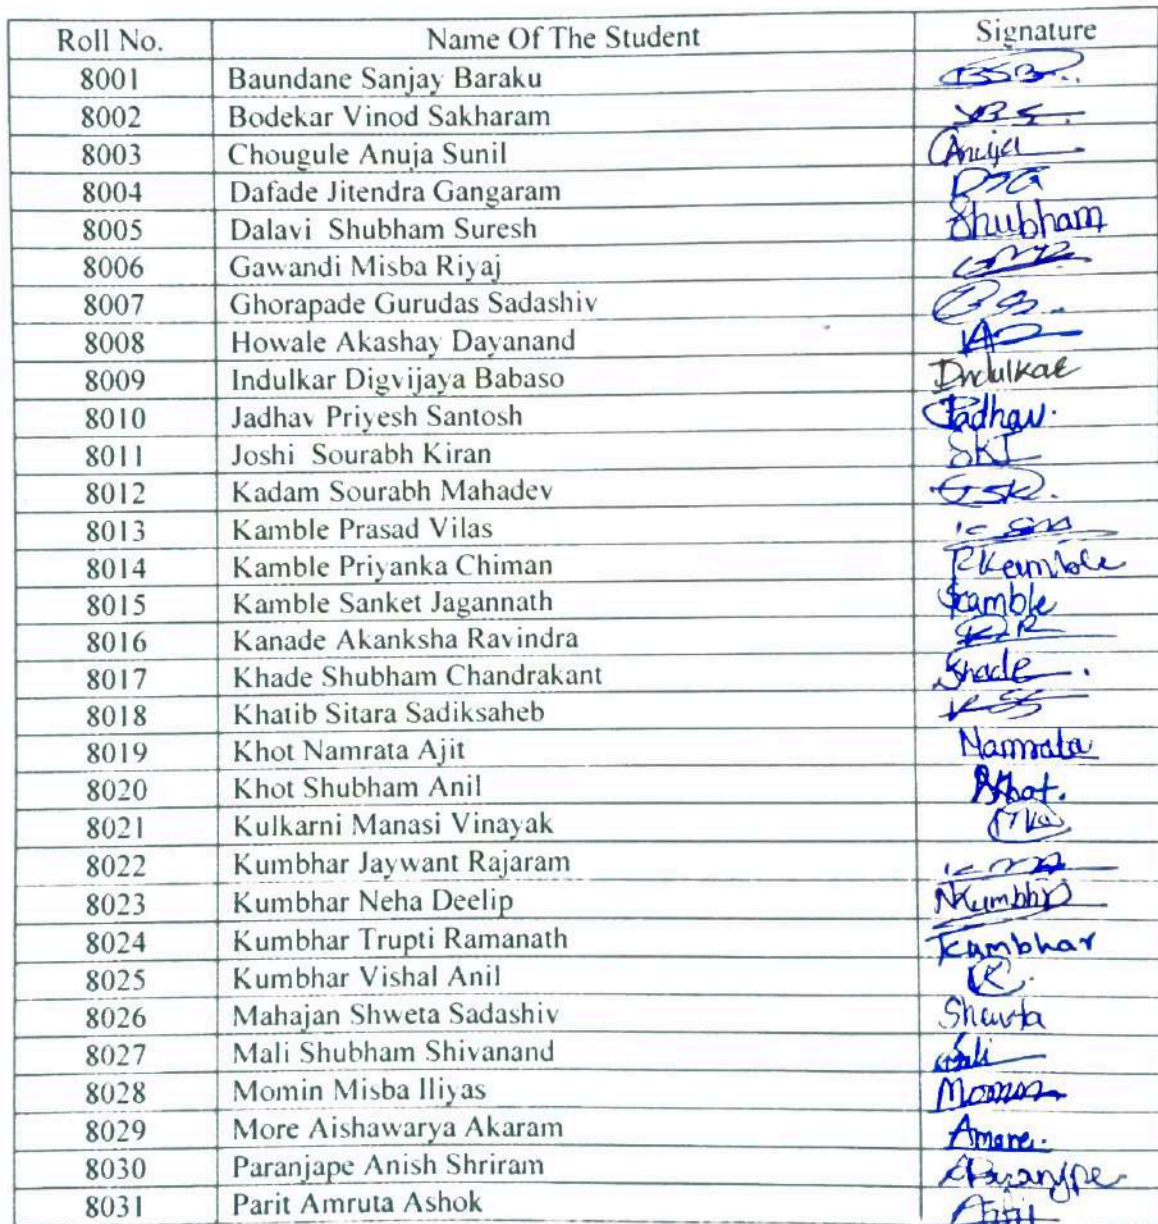 Roll No. Name Of The Student Signature
8001 Baundane Sanjay Baraku BSB
8002 Bodekar Vinod Sakharam
8003 Chougule Anuja Sunil Anuja
8004 Dafade Jitendra Gangaram
8005 Dalavi Shubham Suresh Shubham
8006 Gawandi Misba Riyaj
8007 Ghorapade Gurudas Sadashiv
8008 Howale Akashay Dayanand
8009 Indulkar Digvijaya Babaso Indulkar
8010 Jadhav Priyesh Santosh Jadhav.
8011 Joshi Sourabh Kiran SKJ
8012 Kadam Sourabh Mahadev
8013 Kamble Prasad Vilas
8014 Kamble Priyanka Chiman PKamble
8015 Kamble Sanket Jagannath Skamble
8016 Kanade Akanksha Ravindra
8017 Khade Shubham Chandrakant
8018 Khatib Sitara Sadiksaheb
8019 Khot Namrata Ajit Namrata
8020 Khot Shubham Anil
8021 Kulkarni Manasi Vinayak
8022 Kumbhar Jaywant Rajaram
8023 Kumbhar Neha Deelip
8024 Kumbhar Trupti Ramanath
8025 Kumbhar Vishal Anil
8026 Mahajan Shweta Sadashiv
8027 Mali Shubham Shivanand
8028 Momin Misba Iliyas
8029 More Aishawarya Akaram Amore.
8030 Paranjape Anish Shriram
8031 Parit Amruta Ashok